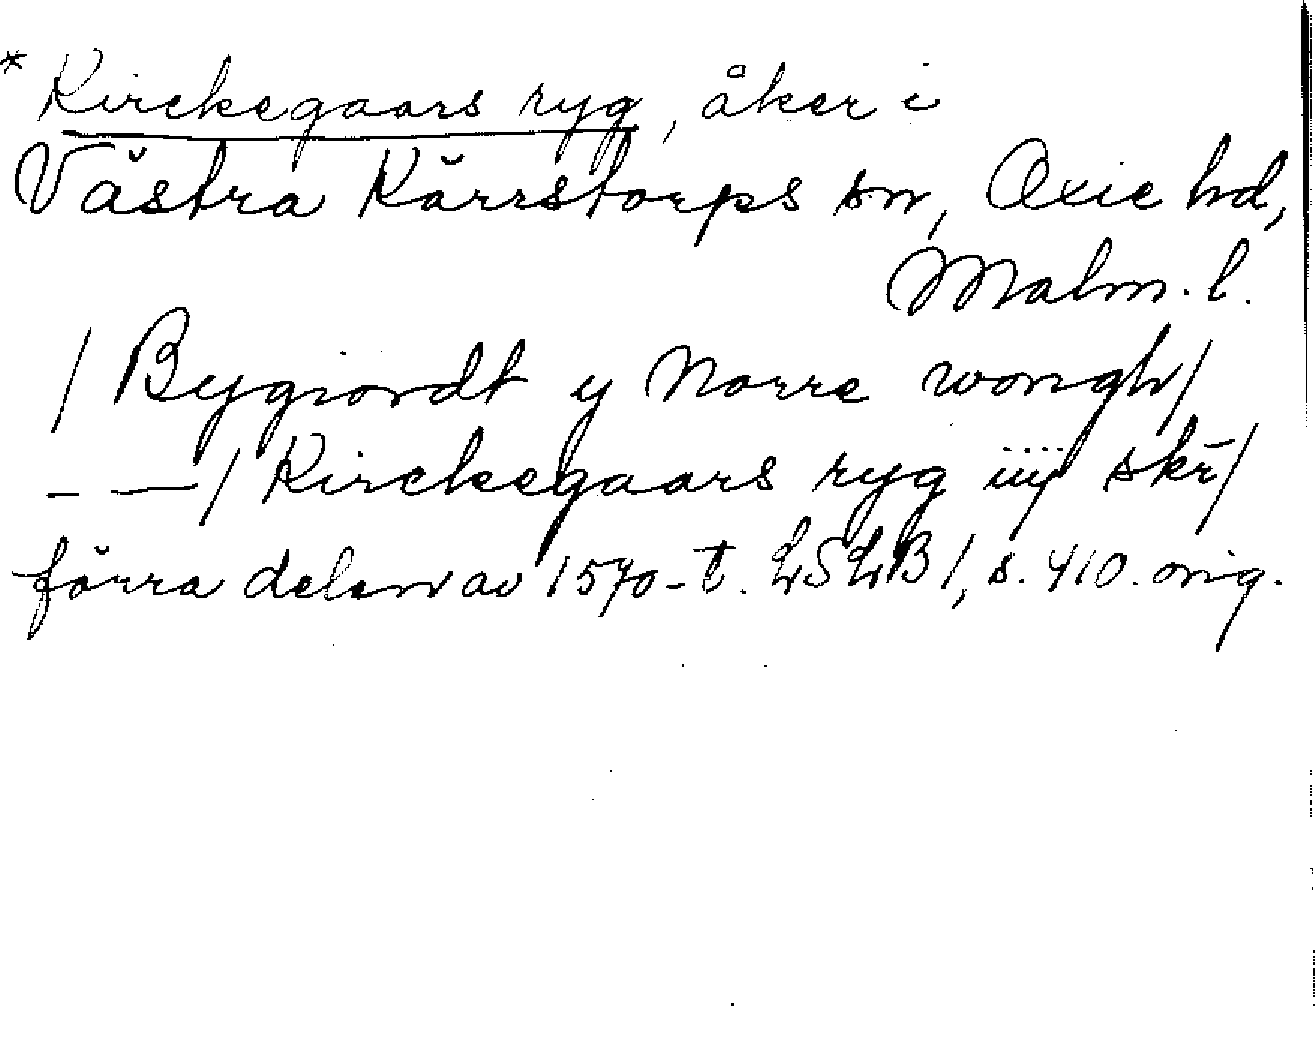 * Kirckegaars ryg, åker i
Västra Kärrstorps sn, Oxie hd,
Malm. l.
/ Bygiordt y Norre wongh/
_ __ / Kirckegaars ryg iiij skr̄/
förra delen av 1570-t. LSLB 1, s. 410. orig.